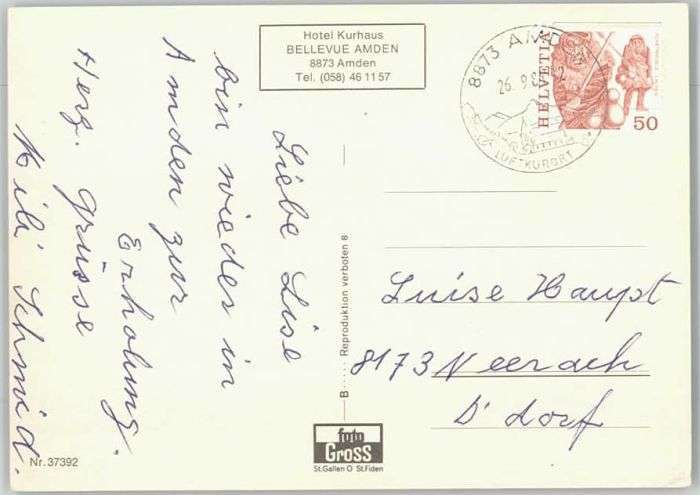 Hotel Kurhaus
BELLEVUE AMDEN
8873 Amden
Tel. (058) 46 11 57
Liebe Lise
bin wieder in
Amden zur
Erholung.
Herz. grüsse
Mili Schmid.
8873 AMD
26. 9.8
LUFTKURORT
HELVETIA
50
Luise Haupt
8173 Neerach
D'dorf
B ..... Reproduktion verboten 8
foto
Gross
St.Gallen O St.Fiden
Nr. 37392